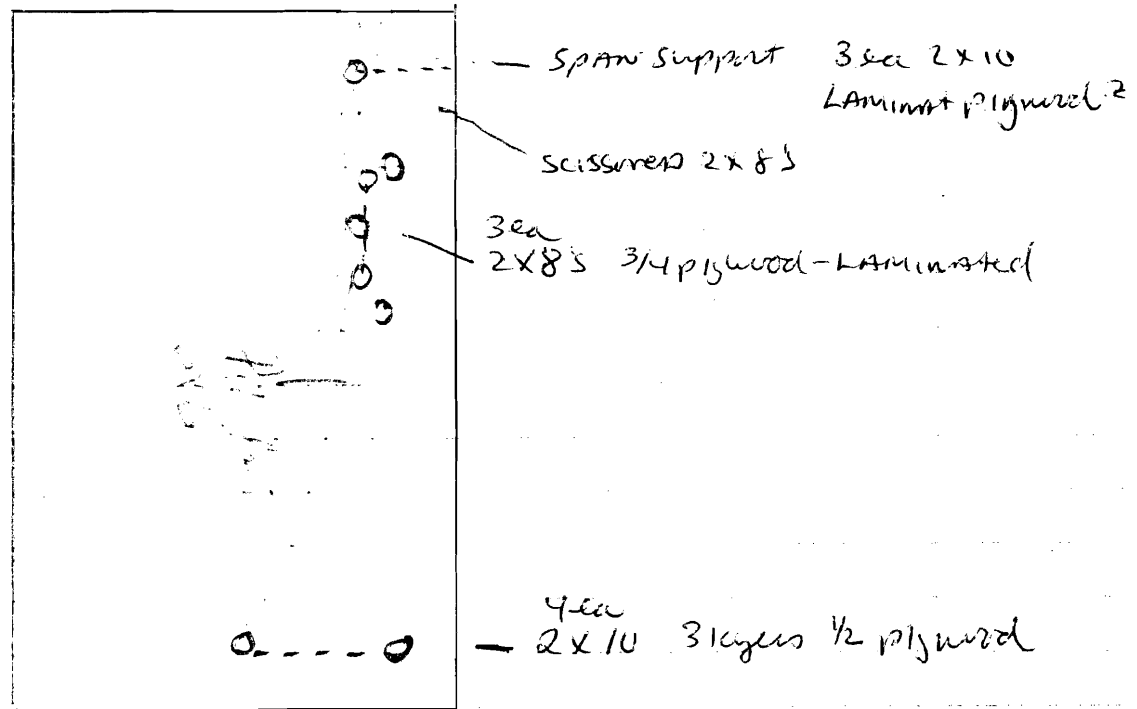 SPAN Support 3 ea 2 x 10
LAMINAT plywood 2
scissored 2 x 8's
3 ea
2 X 8's 3/4 plywood - LAMINATED
4 ea
2 x 10 3 layers 1/2 plywood